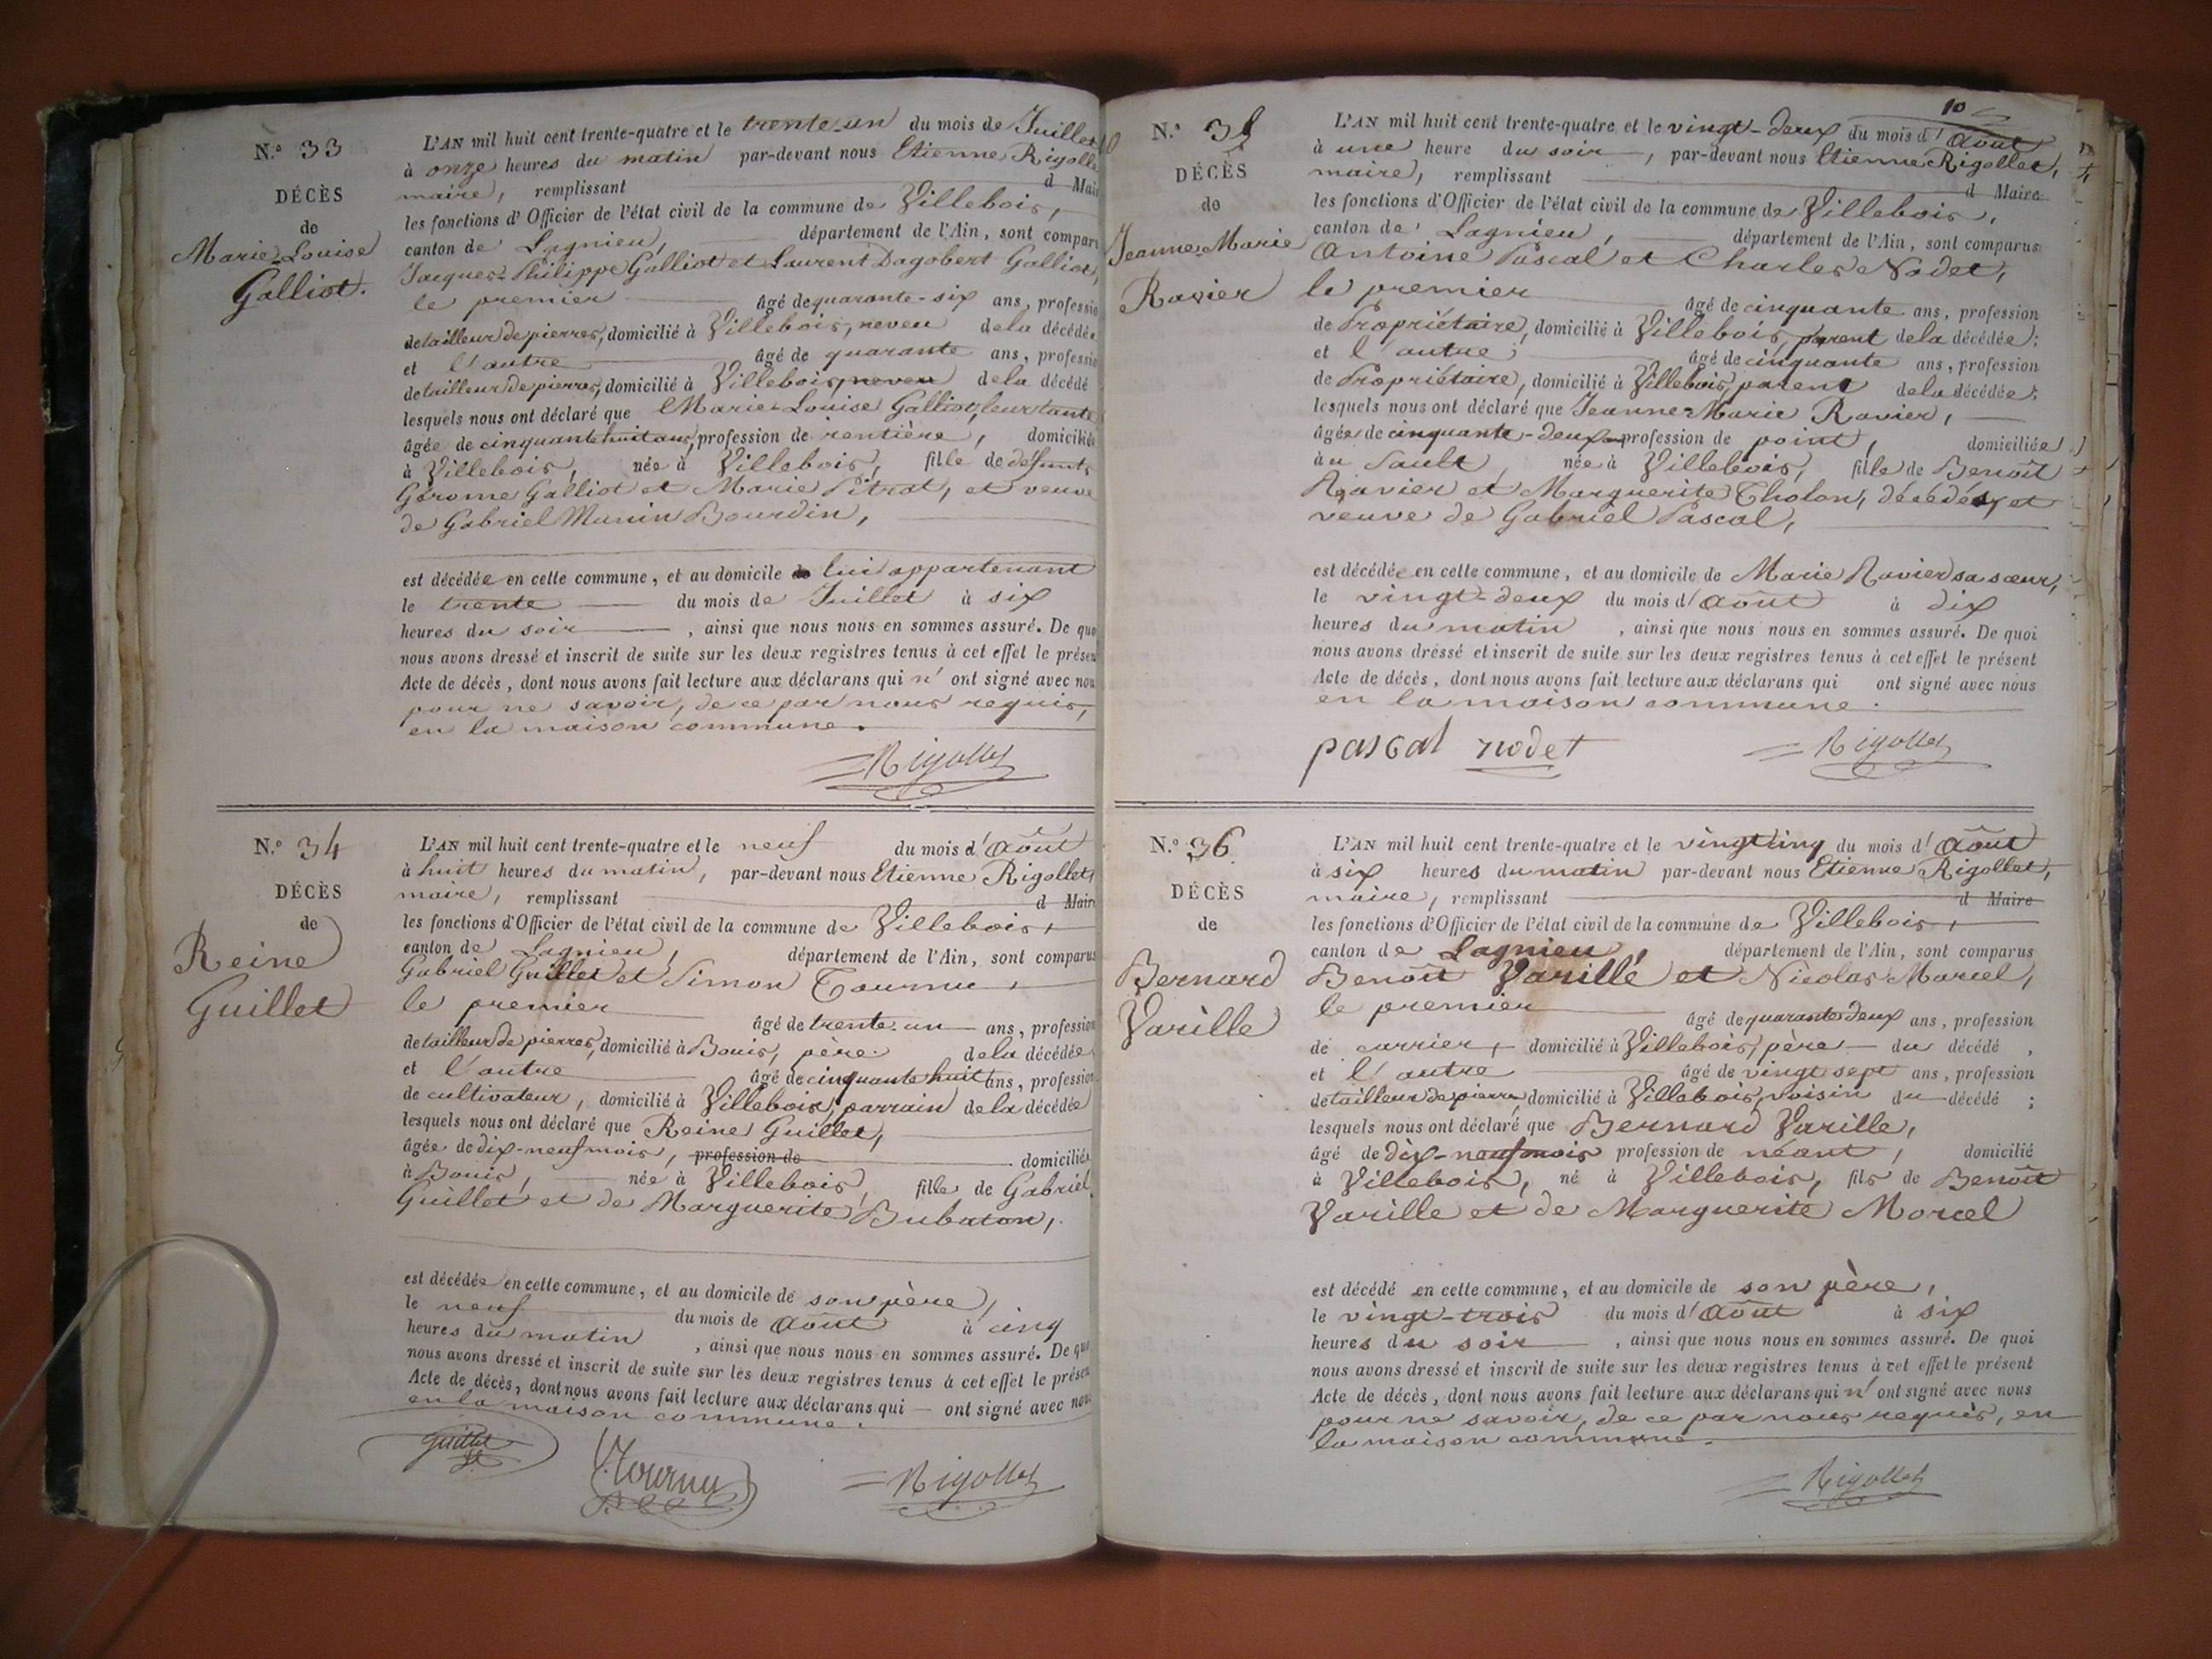 N.° 33
DÉCÈS
de
Marie-Louise
Galliot.
L'AN mil huit cent trente-quatre et le trente un du mois de Juillet
à onze heures du matin par-devant nous Etienne Rigolle
maire, remplissant d Mair
les fonctions d'Officier de l'état civil de la commune de Villebois,
canton de Lagnieu, département de l'Ain, sont compar
Jacques-Philippe Galliot et Laurent Dagobert Galliot,
le premier âgé de quarante-six ans, professio
de tailleur de pierres, domicilié à Villebois, neveu de la décédée
et l'autre âgé de quarante ans, professio
de tailleur de pierres, domicilié à Villebois, neveu de la décédé
lesquels nous ont déclaré que Marie-Louise Galliot, leur tante
âgée de cinquante huit ans, profession de rentière, domiciliée
à Villebois, née à Villebois, fille de défunts
Gérome Galliot et Marie Pitrat, et veuve
de Gabriel Munin Bourdin,
est décédée en cette commune, et au domicile de lui appartenant
le trente du mois de Juillet à six
heures du soir, ainsi que nous nous en sommes assuré. De quo
nous avons dressé et inscrit de suite sur les deux registres tenus à cet effet le présen
Acte de décès, dont nous avons fait lecture aux déclarans qui n' ont signé avec nou
pour ne savoir, de ce par nous requis,
en la maison commune.
Rigollet
N.° 34
DÉCÈS
de
Reine
Guillet
L'AN mil huit cent trente-quatre et le neuf du mois d'Août
à huit heures du matin, par-devant nous Etienne Rigollet,
maire, remplissant d Maire
les fonctions d'Officier de l'état civil de la commune de Villebois,
canton de Lagnieu, département de l'Ain, sont comparus
Gabriel Guillet et Simon Tournu,
le premier âgé de trente-un ans, profession
de tailleur de pierres, domicilié à Bouis, père de la décédée
et l'autre âgé de cinquante huit ans, profession
de cultivateur, domicilié à Villebois, parrain de la décédée
lesquels nous ont déclaré que Reine Guillet,
âgée de dix-neuf mois, profession de domiciliée
à Bouis, née à Villebois, fille de Gabriel
Guillet et de Marguerite Bubaton,
est décédée en cette commune, et au domicile de son père,
le neuf du mois de Août à cinq
heures du matin, ainsi que nous nous en sommes assuré. De quo
nous avons dressé et inscrit de suite sur les deux registres tenus à cet effet le présen
Acte de décès, dont nous avons fait lecture aux déclarans qui ont signé avec nou
en la maison commune.
Guillet
Tournu
Rigollet
10
N.° 35
DÉCÈS
de
Jeanne-Marie
Ravier
L'AN mil huit cent trente-quatre et le vingt-deux du mois d'Août
à une heure du soir, par-devant nous Etienne Rigollet,
maire, remplissant d Maire
les fonctions d'Officier de l'état civil de la commune de Villebois,
canton de Lagnieu, département de l'Ain, sont comparus
Antoine Pascal et Charles Nodet,
le premier âgé de cinquante ans, profession
de Propriétaire, domicilié à Villebois, parent de la décédée;
et l'autre, âgé de cinquante ans, profession
de Propriétaire, domicilié à Villebois, parent de la décédée;
lesquels nous ont déclaré que Jeanne-Marie Ravier,
âgée de cinquante-deux ans profession de point, domiciliée
au Sault, née à Villebois, fille de Benoît
Ravier et Marguerite Tholon, décédés, et
veuve de Gabriel Pascal,
est décédée en cette commune, et au domicile de Marie Ravier sa sœur,
le vingt-deux du mois d'Août à dix
heures du matin, ainsi que nous nous en sommes assuré. De quoi
nous avons dressé et inscrit de suite sur les deux registres tenus à cet effet le présent
Acte de décès, dont nous avons fait lecture aux déclarans qui ont signé avec nous
en la maison commune.
pascal nodet Rigollet
N.° 36
DÉCÈS
de
Bernard
Varille
L'AN mil huit cent trente-quatre et le vingt cinq du mois d'Août
à six heures du matin par-devant nous Etienne Rigollet,
maire, remplissant d Maire
les fonctions d'Officier de l'état civil de la commune de Villebois,
canton de Lagnieu, département de l'Ain, sont comparus
Benoît Varille et Nicolas Marcel,
le premier âgé de quarante deux ans, profession
de carrier, domicilié à Villebois, père du décédé,
et l'autre âgé de vingt sept ans, profession
de tailleur de pierre, domicilié à Villebois, voisin du décédé;
lesquels nous ont déclaré que Bernard Varille,
âgé de dix-neuf mois profession de néant, domicilié
à Villebois, né à Villebois, fils de Benoît
Varille et de Marguerite Morcel
est décédé en cette commune, et au domicile de son père,
le vingt-trois du mois d'Août à six
heures du soir, ainsi que nous nous en sommes assuré. De quoi
nous avons dressé et inscrit de suite sur les deux registres tenus à cet effet le présent
Acte de décès, dont nous avons fait lecture aux déclarans qui n' ont signé avec nous
pour ne savoir, de ce par nous requis, en
la maison commune.
Rigollet